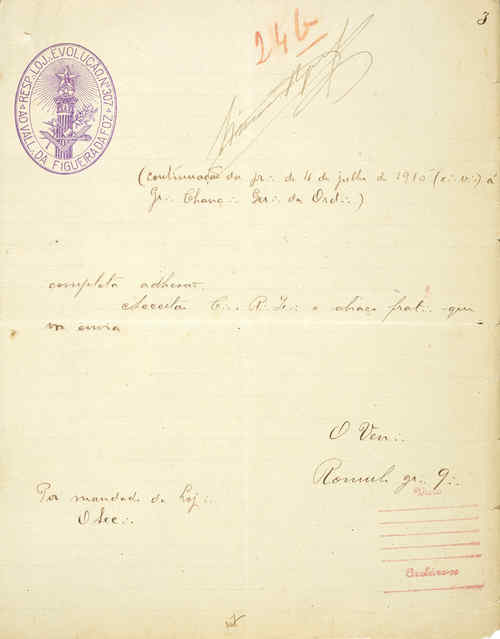 3
24b
RESP∴ LOJ∴ EVOLUÇÃO Nº 307
AO VALL∴ DA FIGUEIRA DA FOZ
(continuação da pr∴ de 4 de julho de 1910 (e∴ v∴) á
Gr∴ Chanc∴ Ger∴ da Ord∴)
completa adhesão.
Acceitae C∴ R∴ I∴ o abraço frat∴ que
vos envia
O Ven∴
Romulo gr∴ 9∴
Por mandado da Loj∴
O Sec∴
Visto